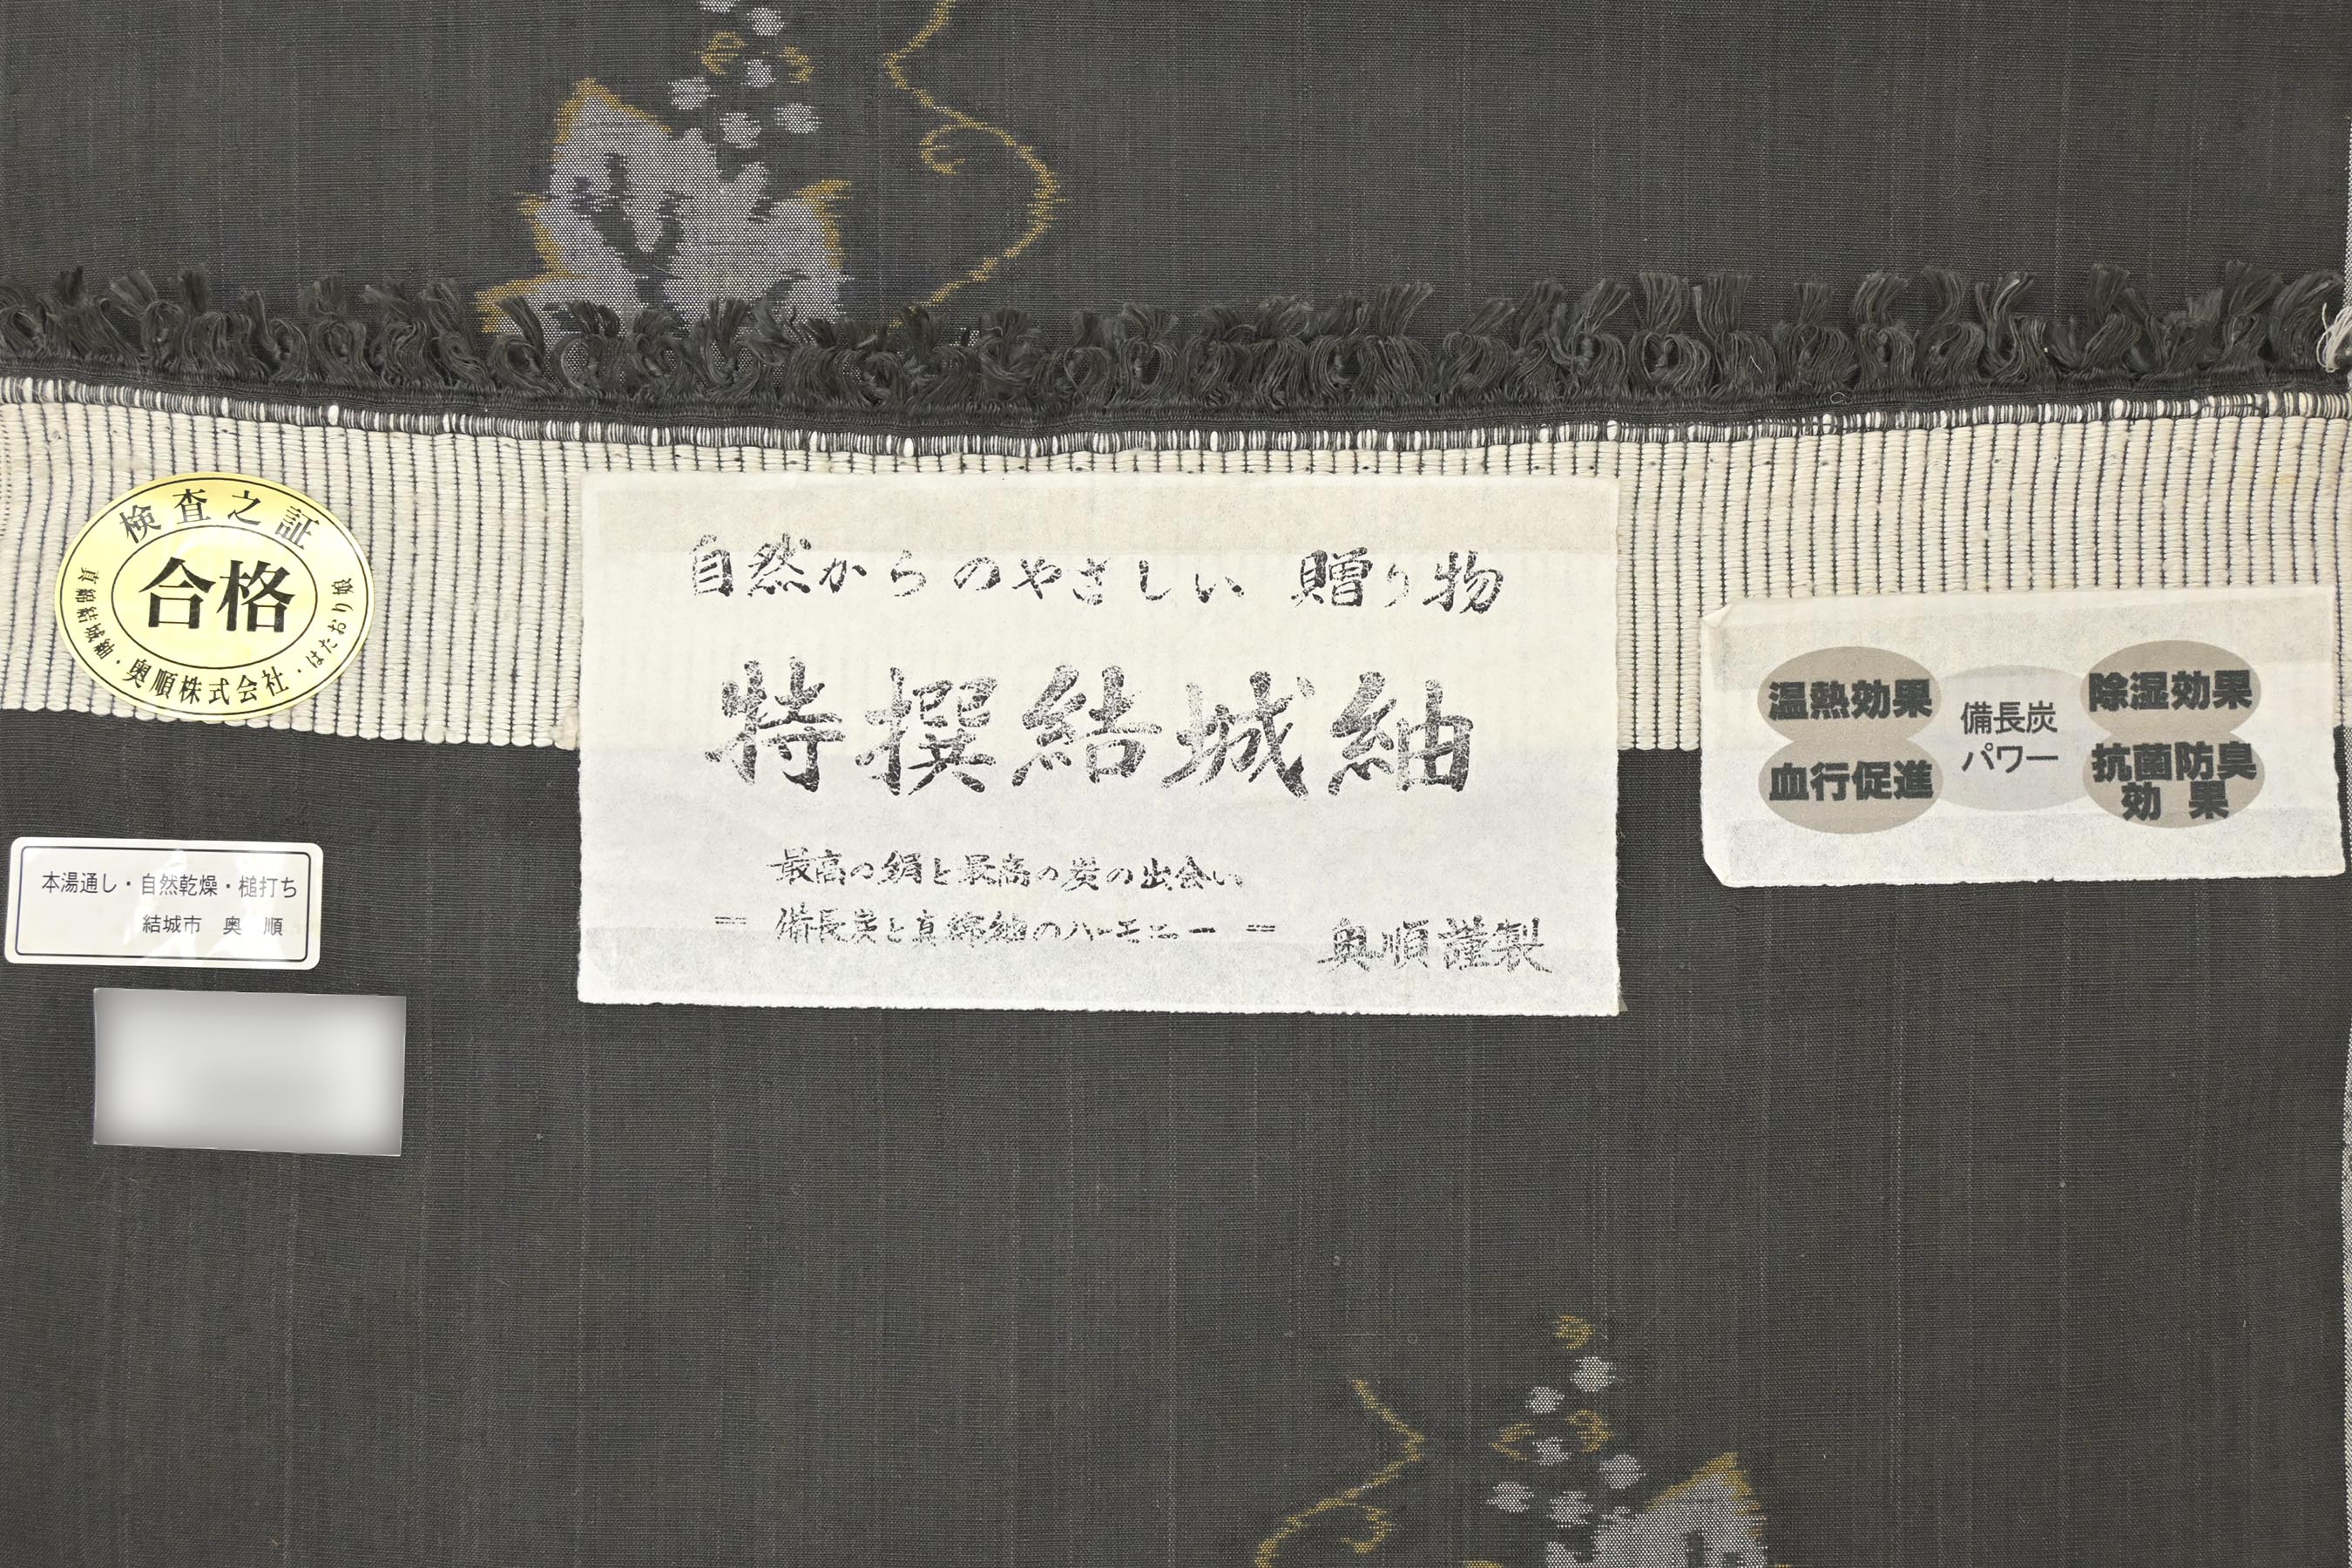 検査之証
合格
真綿結城紬・奥順株式会社・はたおり娘
自然からのやさしい 贈り物
特撰結城紬
最高の絹と最高の炭の出会い
== 備長炭と真綿紬のハーモニー ==
奥順謹製
温熱効果
血行促進
備長炭
パワー
除湿効果
抗菌防臭
効 果
本湯通し・自然乾燥・槌打ち
結城市 奥 順